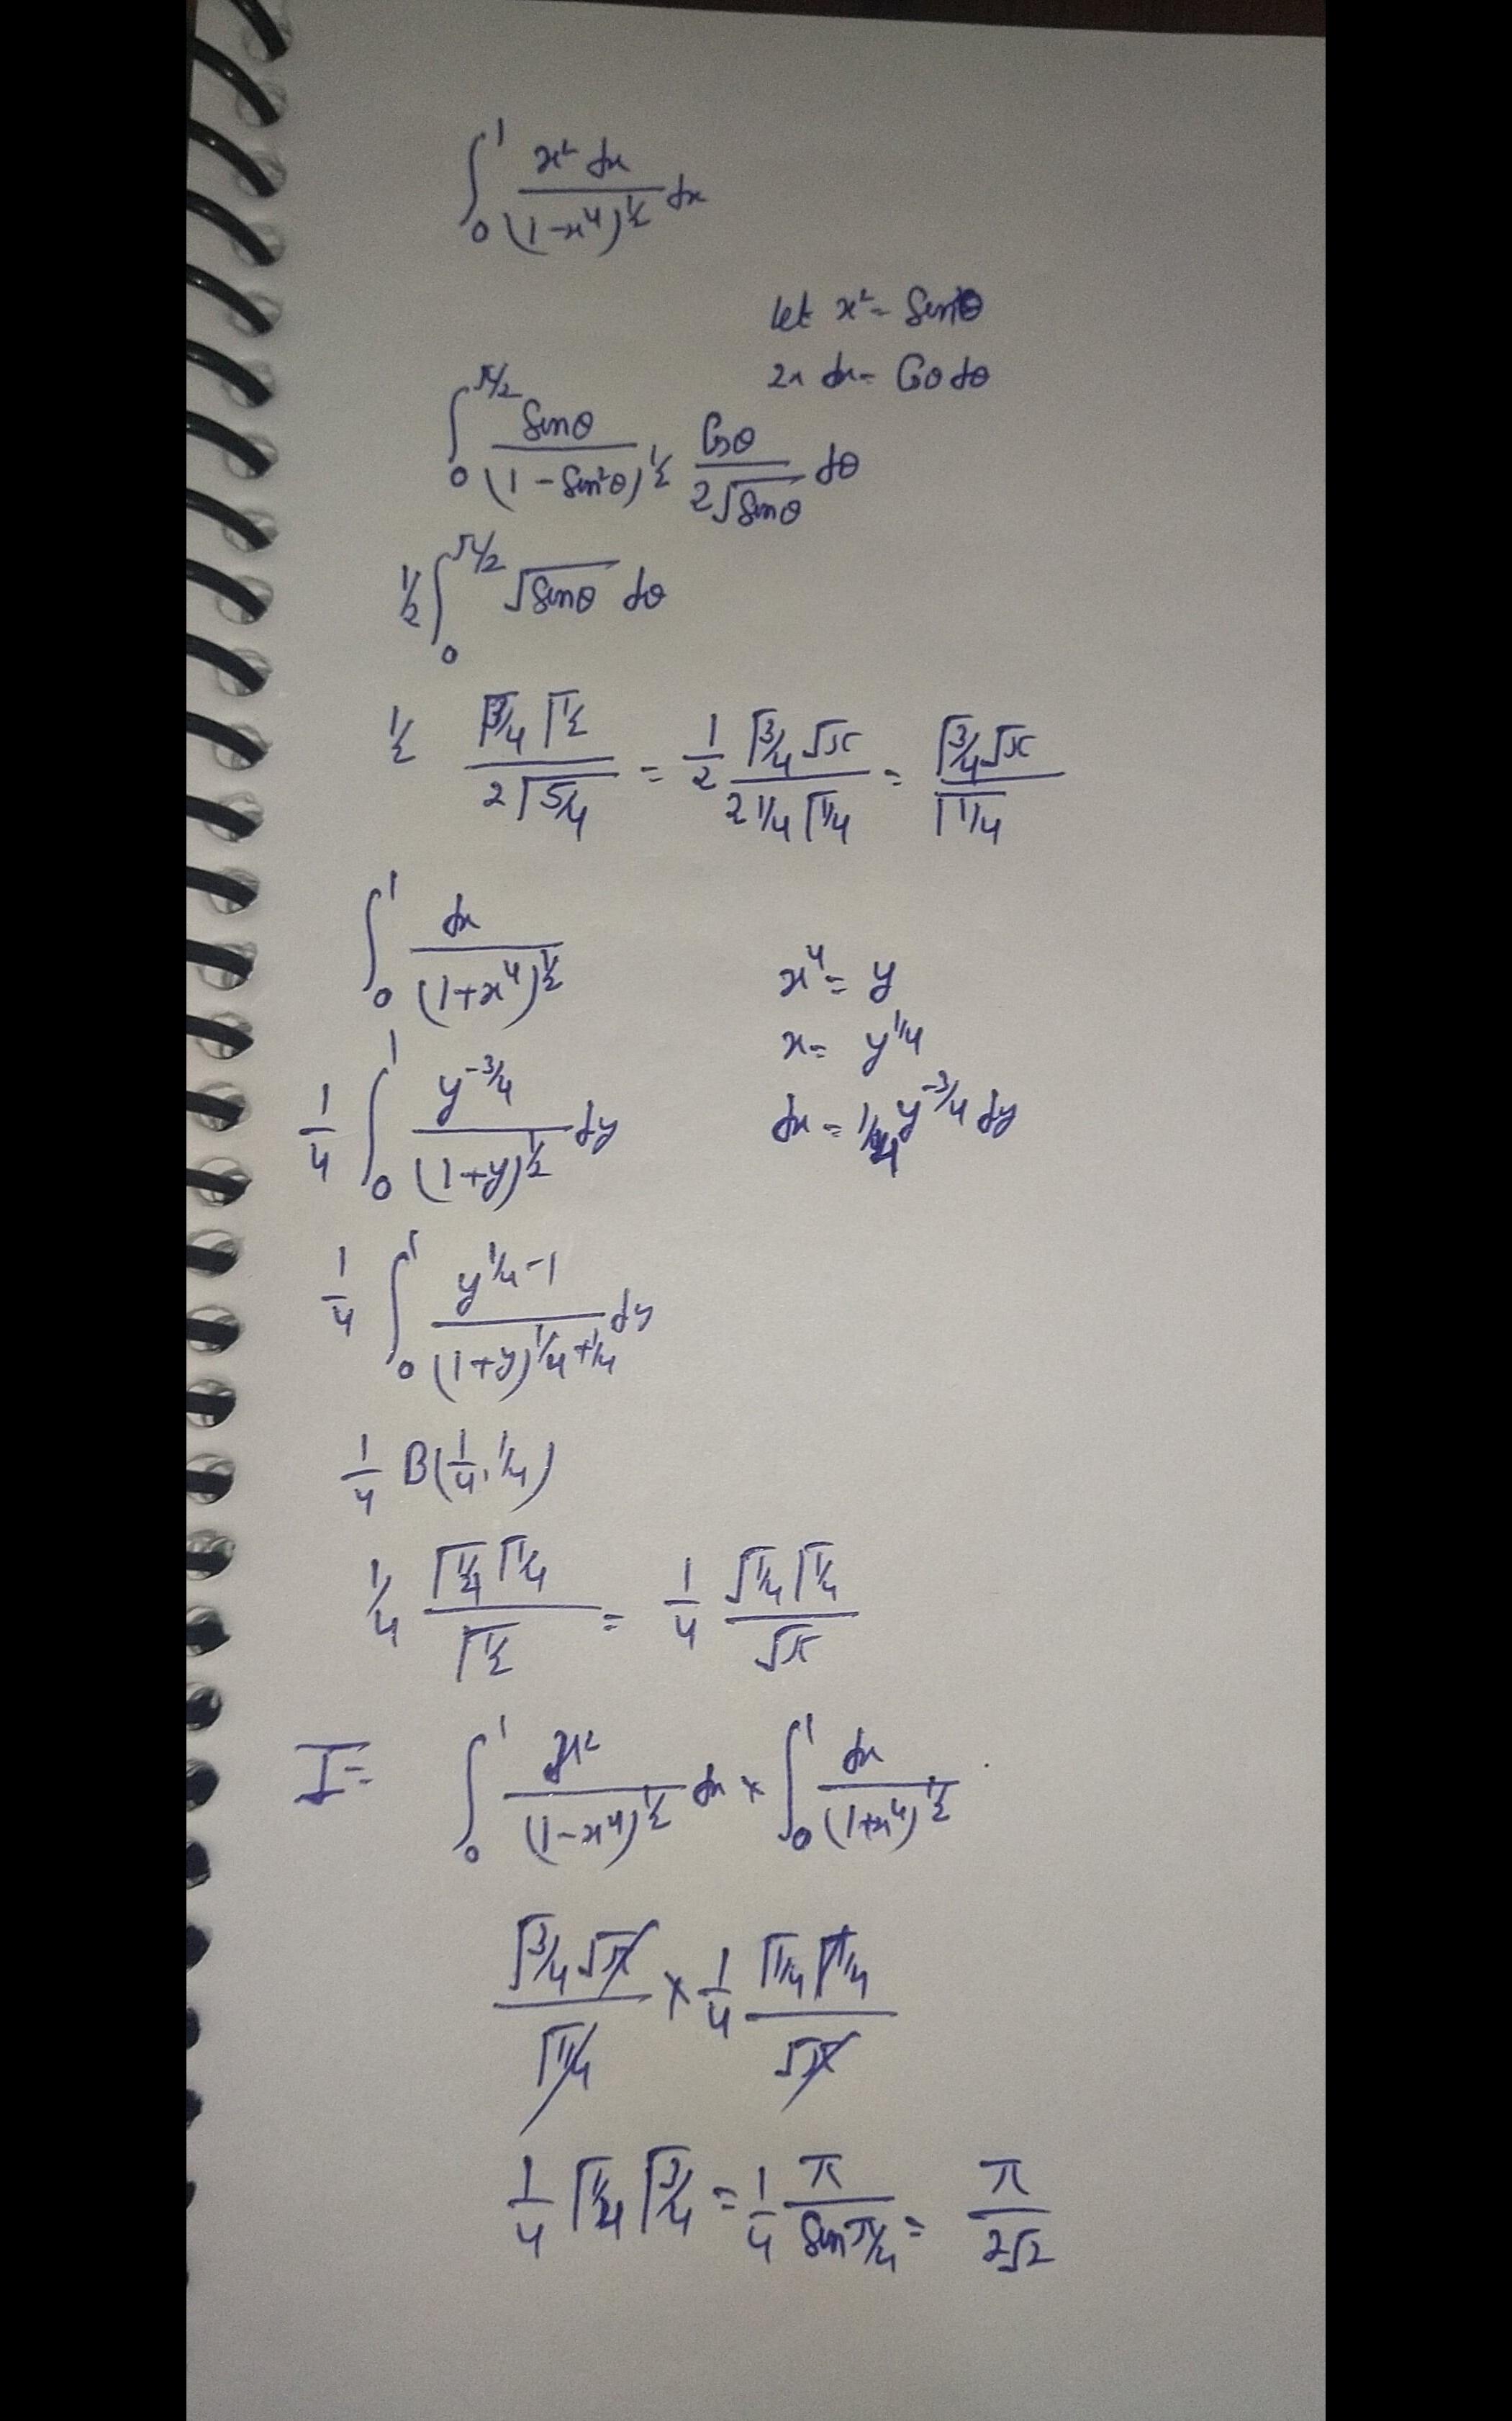 ∫₀¹ x² dx / (1-x⁴)^½ dx
let x² = Sinθ
2x dx = Cosθ dθ
∫₀^π/2 Sinθ / (1-Sin²θ)^½ Cosθ / 2√Sinθ dθ
½ ∫₀^π/2 √Sinθ dθ
½ Γ3/4 Γ½ / 2Γ5/4 = 1/2 Γ3/4 √π / 2 1/4 Γ1/4 = Γ3/4 √π / Γ1/4
∫₀¹ dx / (1+x⁴)^½
x⁴ = y
x = y^1/4
dx = 1/4 y^-3/4 dy
1/4 ∫₀¹ y^-3/4 / (1+y)^½ dy
1/4 ∫₀¹ y^1/4-1 / (1+y)^1/4+1/4 dy
1/4 B(1/4, 1/4)
1/4 Γ1/4 Γ1/4 / Γ½ = 1/4 Γ1/4 Γ1/4 / √π
I = ∫₀¹ x² / (1-x⁴)^½ dx × ∫₀¹ dx / (1+x⁴)^½
Γ3/4 √π / Γ1/4 × 1/4 Γ1/4 Γ1/4 / √π
1/4 Γ1/4 Γ3/4 = 1/4 π / Sin π/4 = π / 2√2